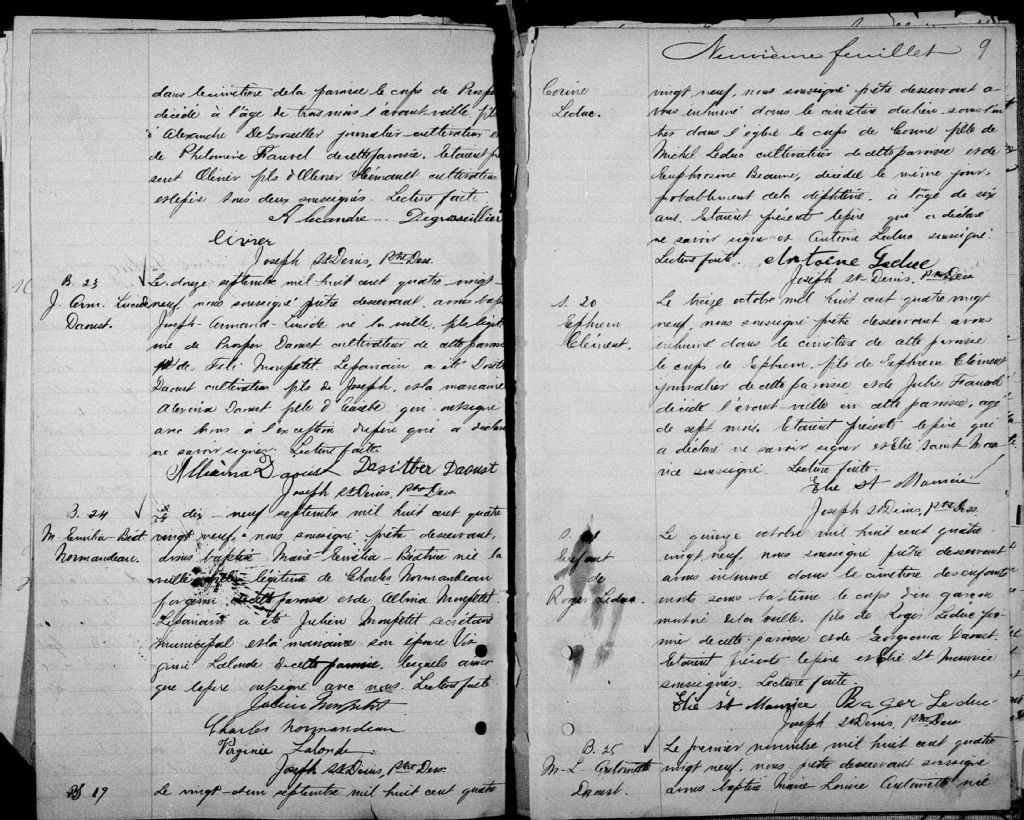 dans le cimetière de la paroisse le corps de Prosper
décédé à l'âge de trois mois l'avant-veille fils
d'Alexandre DeGroseiller journalier cultivateur et
de Philomène Fauvel de cette paroisse. Etaient pré
sent Olivier fils d'Olivier cultivateur
et le père tous deux soussignés. Lecture faite
Alexandre Degroseillier
Olivier
Joseph St Denis, Ptre Dess.
B. 23
J. Arm. Lucide
Daoust.
Le douze septembre mil huit cent quatre-vingt-
neuf, nous soussigné prêtre desservant, avons bap
Joseph-Armand-Lucide né la veille, fils légit
ime de Prosper Daoust cultivateur de cette paroisse
et de Monpetit. Le parrain a été
Daoust cultivateur fils de Joseph, et la marraine
Daoust fille d'Eusèbe qui ont signé
avec nous à l'exception du père qui a déclaré
ne savoir signer. Lecture faite.
Daoust Daoust
Joseph St Denis, Ptre Dess
B. 24
M. Emilia-Béat
Normandeau.
Le dix-neuf septembre mil huit cent quatre
vingt neuf, nous soussigné prêtre desservant,
avons baptisé Marie-Emilia-Béatrice née la
veille fille légitime de Charles Normandeau
forgeron de cette paroisse et de Albina Monpetit.
Le parrain a été Julien Monpetit secrétaire
municipal et la marraine son épouse Vir
ginie Lalonde de cette paroisse, lesquels ainsi
que le père ont signé avec nous. Lecture faite.
Julien Monpetit
Charles Normandeau
Virginie Lalonde
Joseph St Denis, Ptre Dess.
S 19
Le vingt-et un septembre mil huit cent quatre
Neuvième feuillet 9
Corine
Leduc.
vingt neuf, nous soussigné prêtre desservant a-
vons inhumé dans le cimetière du lieu sans l'en
trer dans l'église le corps de Corine fille de
Michel Leduc cultivateur de cette paroisse et de
Euphrosine Beaune, décédée le même jour,
probablement de la diphtérie, à l'âge de six
ans. Etaient présent le père qui a déclaré
ne savoir signer et Antoine Leduc soussigné.
Lecture faite. Antoine Leduc
Joseph St-Denis, Ptre Dess
S. 20
Ephrem
Clément.
Le treize octobre mil huit cent quatre vingt
neuf, nous soussigné prêtre desservant avons
inhumé dans le cimetière de cette paroisse
le corps de Ephrem, fils de Ephrem Clément
journalier de cette paroisse et de Julie Fauvel
décédé l'avant-veille en cette paroisse, âgé
de sept mois. Etaient présents le père qui
a déclaré ne savoir signer et Elie Saint Mau-
rice soussigné. Lecture faite.
Elie St Maurice
Joseph St Denis, Ptre Dess.
S.
Enfant
de
Roger Leduc
Le quinze octobre mil huit cent quatre
vingt neuf, nous soussigné prêtre desservant
avons inhumé dans le cimetière des enfants
morts sans baptême le corps d'un garçon
mort né de la veille, fils de Roger Leduc fer
mier de cette paroisse et de Georgiana Daoust.
Etaient présents le père et Elie St Maurice
soussignés. Lecture faite.
Elie St Maurice Roger Leduc
Joseph St Denis, Ptre Dess
B. 25
M-L-Antoinette
Daoust.
Le premier novembre mil huit cent quatre
vingt neuf, nous prêtre desservant soussigné
avons baptisé Marie Louise Antoinette née